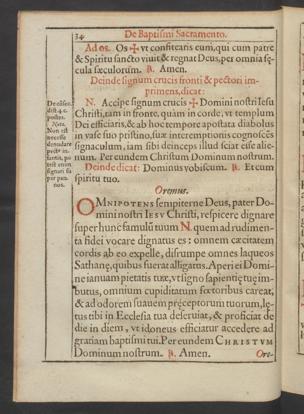 34
De Baptismi Sacramento.
Ad os. Os ✠ vt confitearis eum, qui cum patre
& Spiritu sancto viuit & regnat Deus, per omnia sę-
cula sæculorum. ℟. Amen.
Deinde signum crucis fronti & pectori im-
primens, dicat:
N. Accipe signum crucis ✠ Domini nostri Iesu
Christi, tam in fronte, quam in corde, vt templum
Dei efficiaris, & ab hoc tempore apostata diabolus
in vase suo pristino, suæ interemptionis cognoscēs
signaculum, iam sibi deinceps illud sciat esse alie-
num. Per eundem Christum Dominum nostrum.
Deinde dicat: Dominus vobiscum. ℟. Et cum
spiritu tuo.
Oremus.
OMNIPOTENS sempiterne Deus, pater Do-
mini nostri IESV Christi, respicere dignare
super hunc famulū tuum N. quem ad rudimen-
ta fidei vocare dignatus es: omnem cæcitatem
cordis ab eo expelle, disrumpe omnes laqueos
Sathanę, quibus fuerat alligatus. Aperi ei Domi-
ne ianuam pietatis tuæ, vt signo sapientię tuę im-
butus, omnium cupiditatum fœtoribus careat,
& ad odorem suauem pręceptorum tuorum, lę-
tus tibi in Ecclesia tua deseruiat, & proficiat de
die in diem, vt idoneus efficiatur accedere ad
gratiam baptismi tui. Per eundem CHRISTVM
Dominum nostrum. ℟. Amen.
Ore-
De
dist. 4. c.
postea.
Nota.
Non est
necesse
denudare
pectus in-
fantis, po-
test enim
signari su-
per pan-
nos.